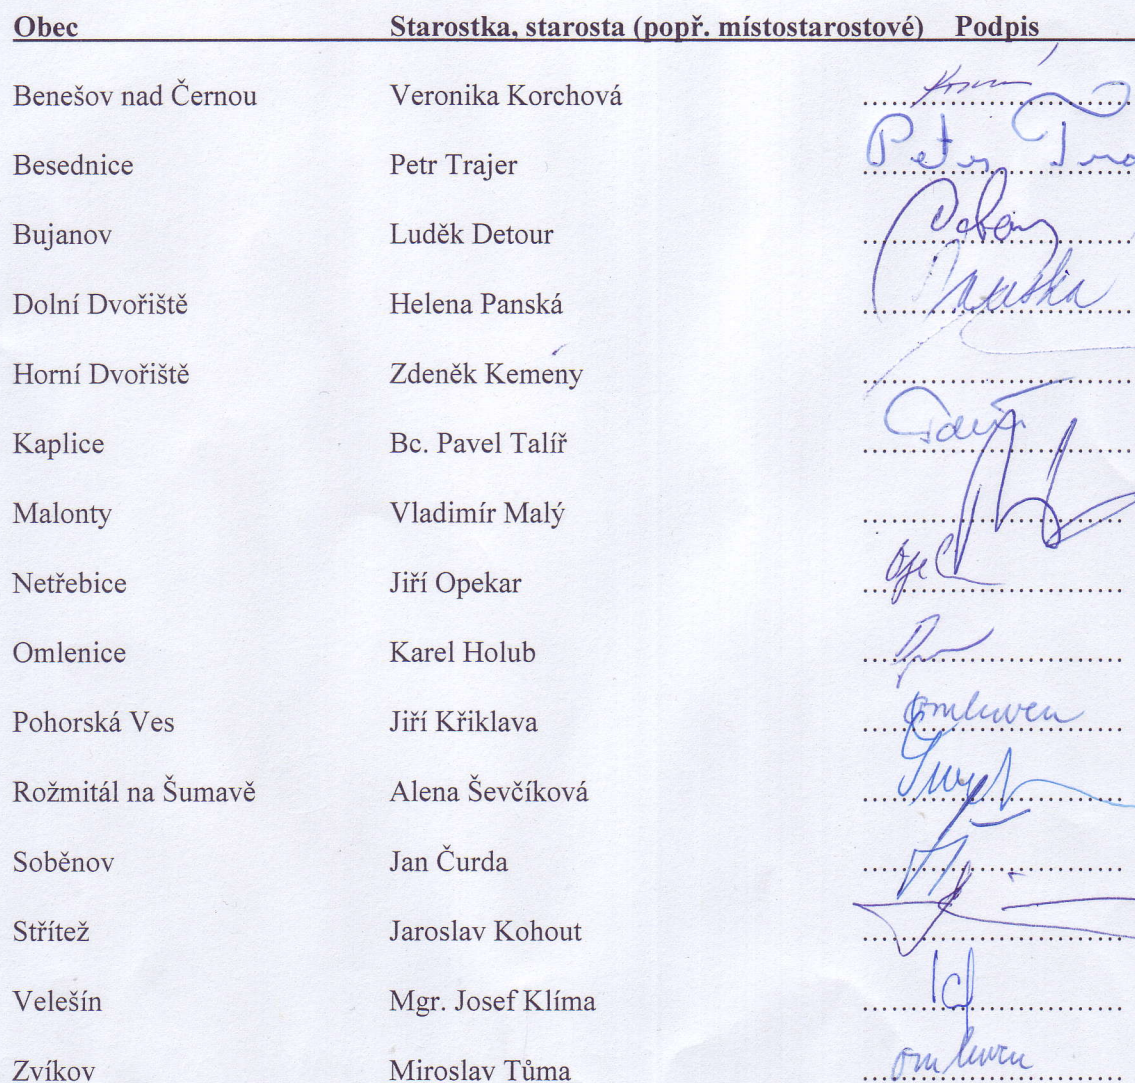 Obec Starostka, starosta (popř. místostarostové) Podpis
Benešov nad Černou Veronika Korchová
Besednice Petr Trajer Petr
Bujanov Luděk Detour
Dolní Dvořiště Helena Panská
Horní Dvořiště Zdeněk Kemény
Kaplice Bc. Pavel Talíř
Malonty Vladimír Malý
Netřebice Jiří Opekar
Omlenice Karel Holub
Pohorská Ves Jiří Křiklava omluven
Rožmitál na Šumavě Alena Ševčíková
Soběnov Jan Čurda
Střítež Jaroslav Kohout
Velešín Mgr. Josef Klíma
Zvíkov Miroslav Tůma omluven